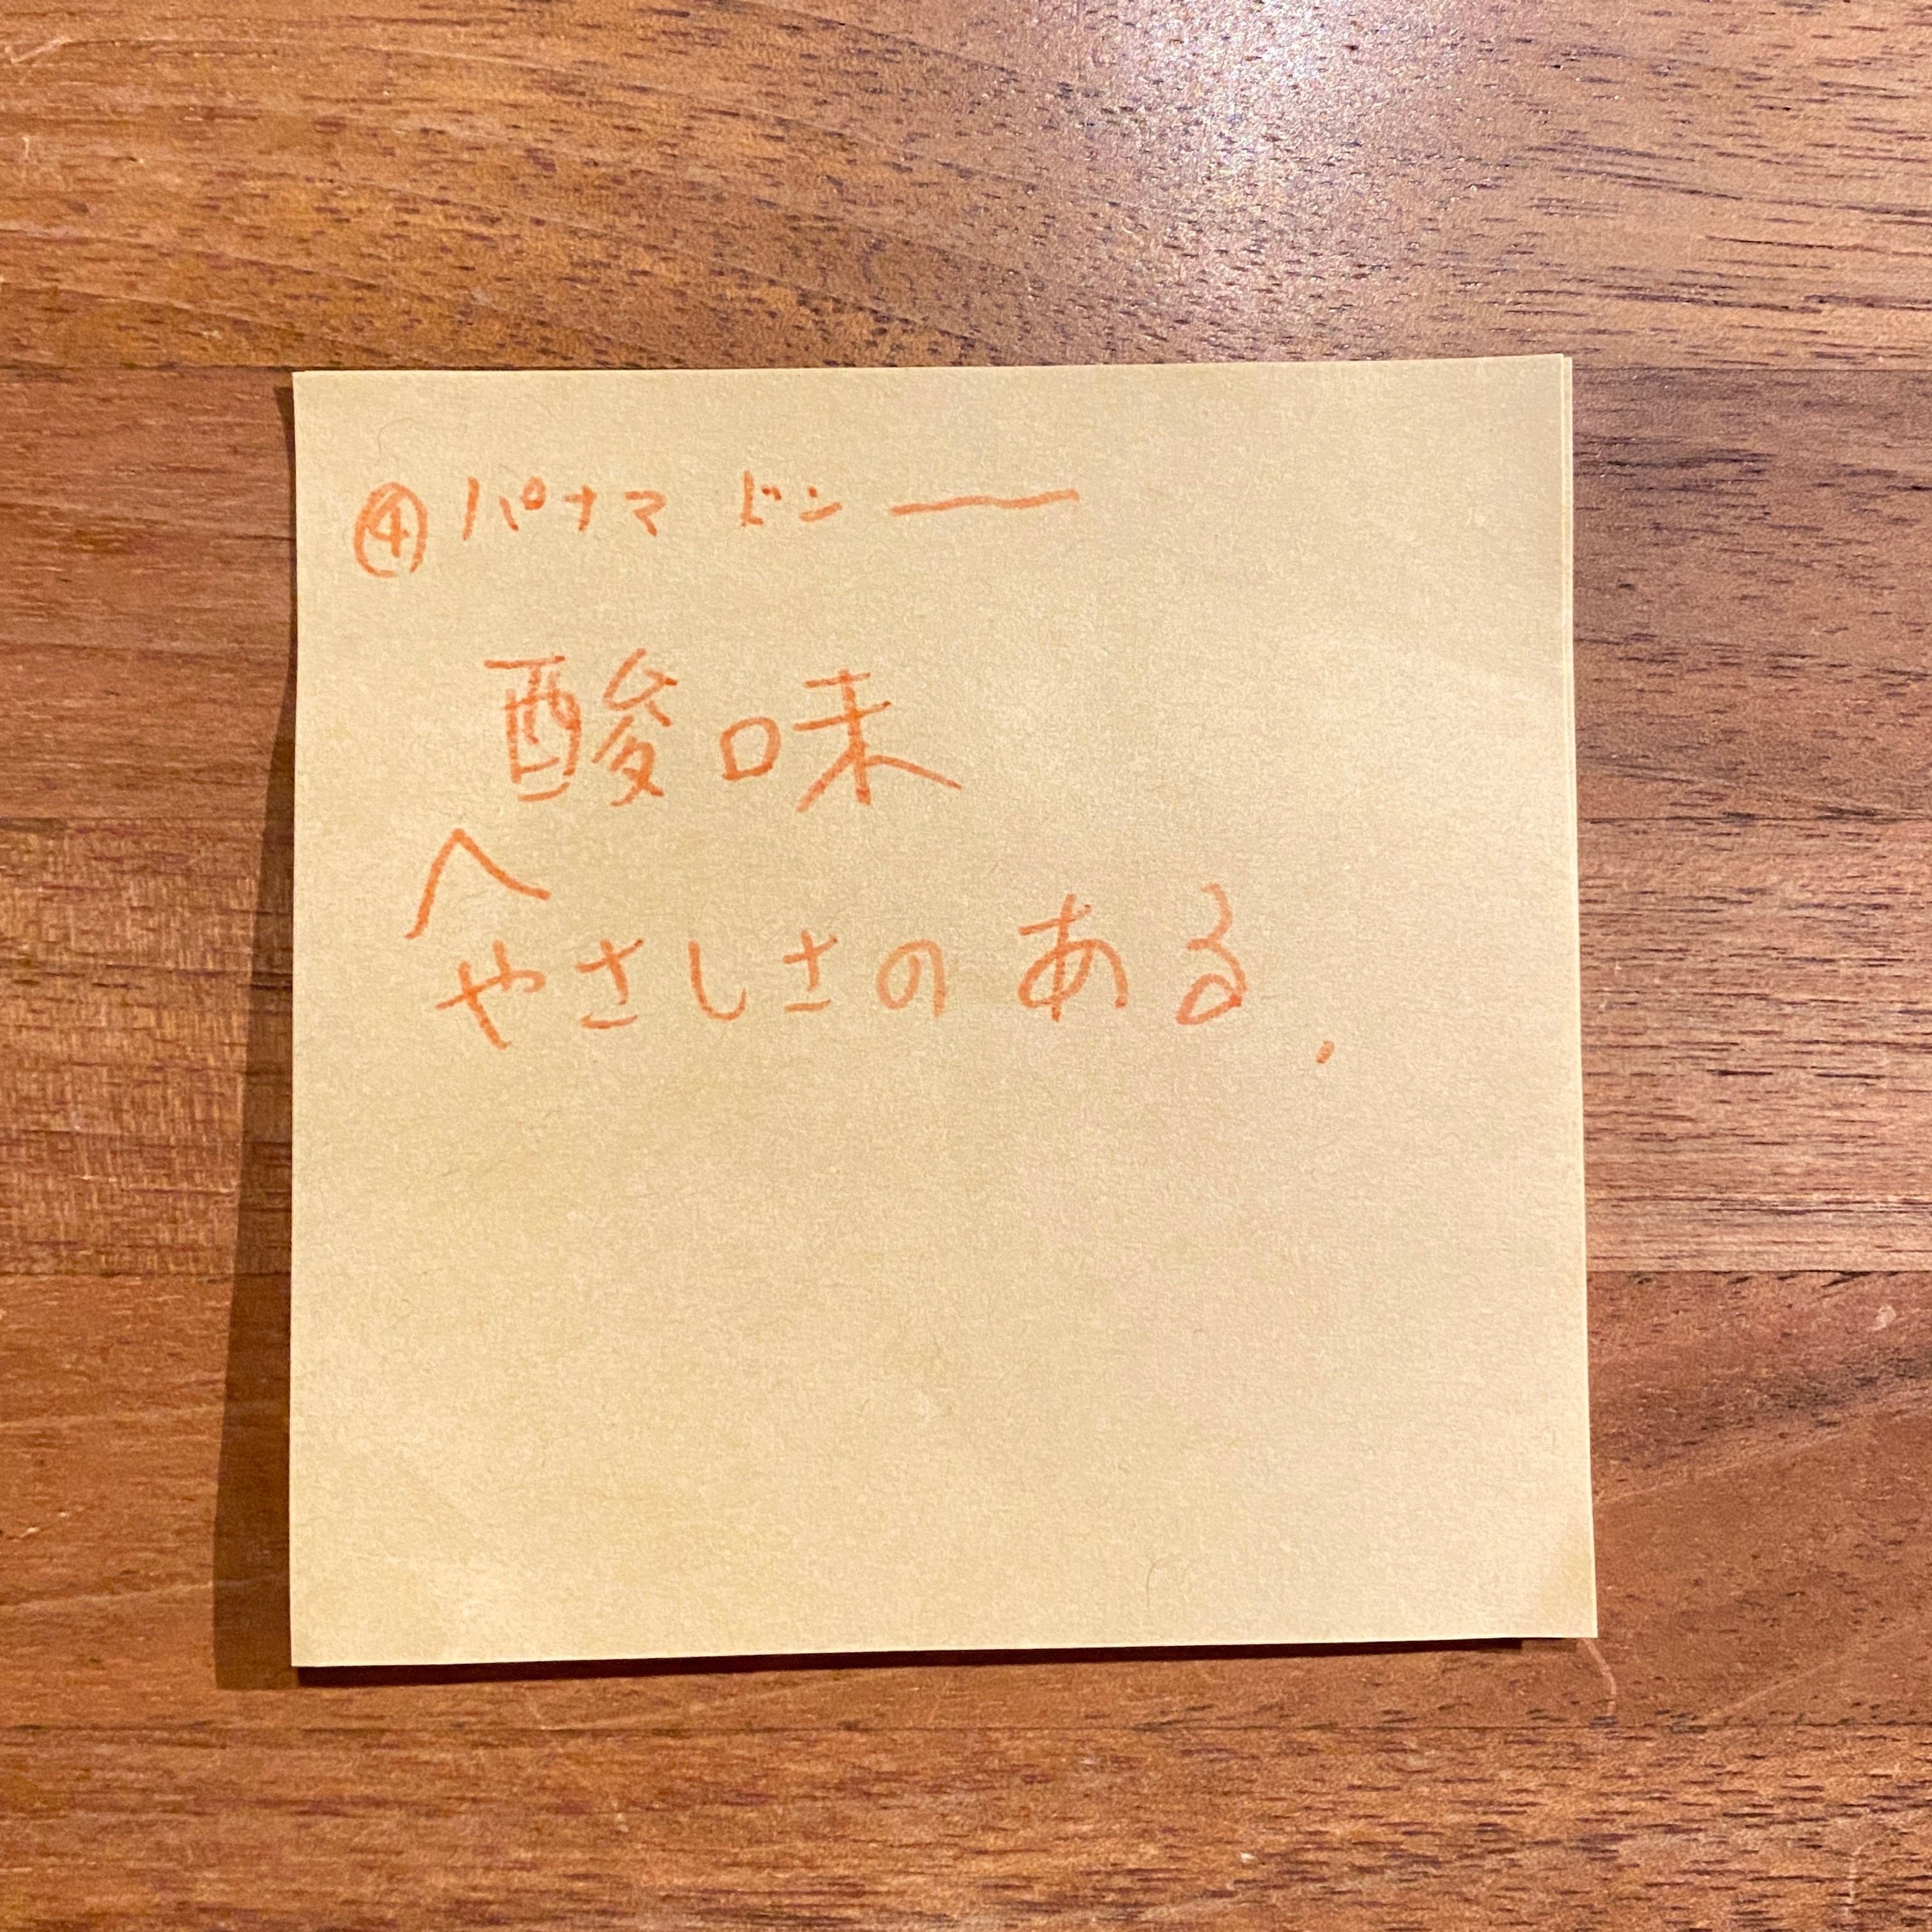 ④ パナマ ドン ――
酸味
やさしさのある.